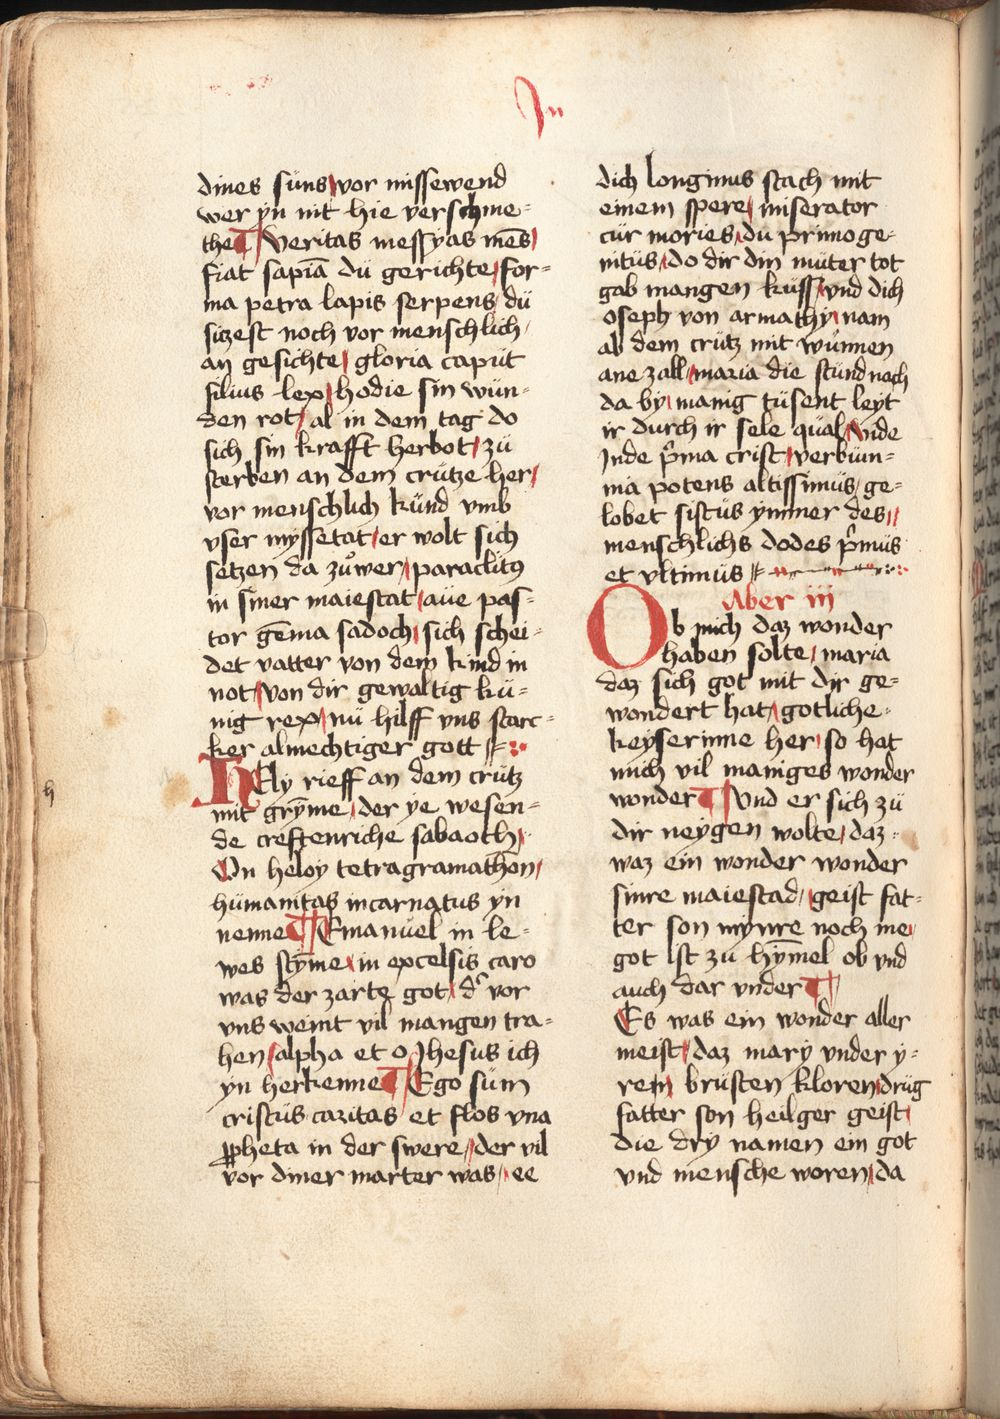 In
dines süns / vor missewend
wer yn nit hie verschme=
the ¶ Veritas messyas mēs /
fiat sapiā dü gerichte / for=
ma petra lapis serpens / dü
sizest noch vor menschlich /
an gesichte / gloria capüt
filius lex / hodie sin wün=
den rot / al in dem tag do
sich sin krafft herbot / zü
sterben an dem crütze her /
vor menschlich künd vmb
vser myssetat / er wolt sich
setzen da zůwer / paraclitꝰ
in siner maiestat / aüe pas=
tor gēma sadoch / sich schei=
det vatter von dem kind in
not / von dir gewaltig kü=
nig rex / nü hilff vns starc=
ker almechtiger gott
Hely rieff an dem crütz
mit grȳme / der ye wesen=
de creftenriche sabaoth /
On heloy tetragramathon /
hümanitas incarnatus yn
nenne ¶ Emanüel in le=
wes stȳme / in excelsis caro
was der zarte got / dˀ vor
vns weint vil mangen tra=
hen / alpha et o Jhesus ich
yn herkenne ¶ Ego süm
cristüs caritas et flos vna
ꝓpheta in der swere / der vil
vor diner marter was / ee
h
dich longinus stach mit
einem spere / miserator
cür mories / du primoge=
nitüs / do dir din müter tot
gab mangen küss / vnd dich
oseph von armathy / nam
ab dem crütz mit wünnen
ane zall / maria die stünd nach
da by / manig tüsent leyt
ir durch ir sele qüal / Vnde
Inde p̄ma crist / verbüm=
ma potens altissimüs / ge=
lobet sistüs ymmer des /
menschlichs dodes p̄müs
et vltimüs
Aber iij
Ob mich daz wonder
haben solte / maria
daz sich got mit dyr ge=
wondert hat / gotliche=
keyserinne her / so hat
mich vil maniges wonder
wonder ¶ Vnd er sich zü
dir neygen wolte / daz=
waz ein wonder wonder
sinre maiestad / geist fat=
ter son mynre noch me /
got Ist zu hȳmel ob vnd
auch dar vnder ¶
Es was ein wonder aller
meist / daz mary vnder y=
ren / brüsten kloren / drüg
fatter son heilger geist /
die dry namen ein got
vnd mensche woren / da